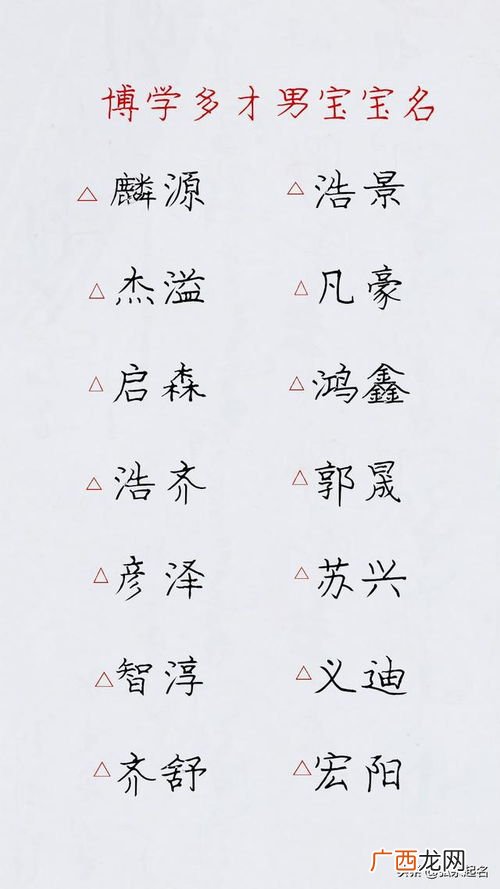 博学多才男宝宝名
△麟源 △浩景
△杰溢 △凡豪
△启森 △鸿鑫
△浩齐 △郭晟
△彦泽 △苏兴
△智淳 △义迪
△齐舒 △宏阳
广西龙网